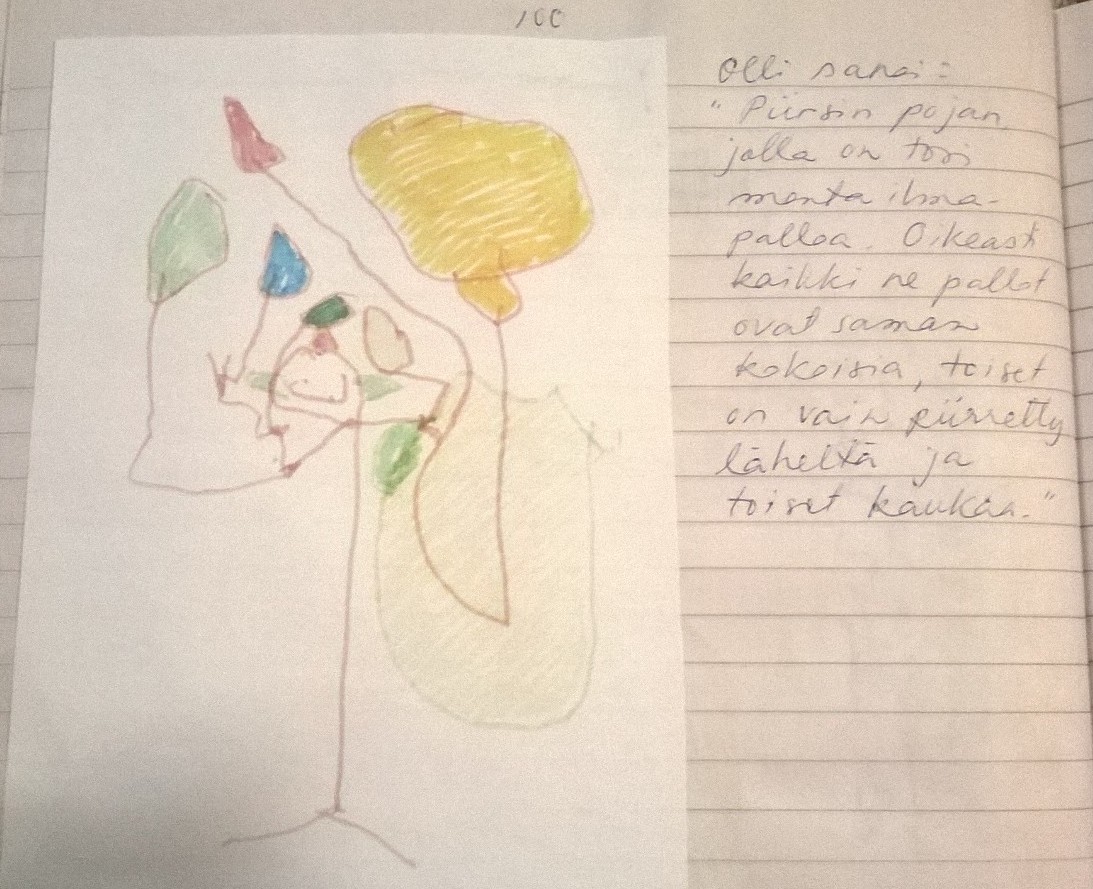 100
Olli sanoi:
"Piirsin pojan,
jolla on tosi
monta ilma-
palloa. Oikeasti
kaikki ne pallot
ovat saman
kokoisia, toiset
on vain piirretty
läheltä ja
toiset kaukaa."